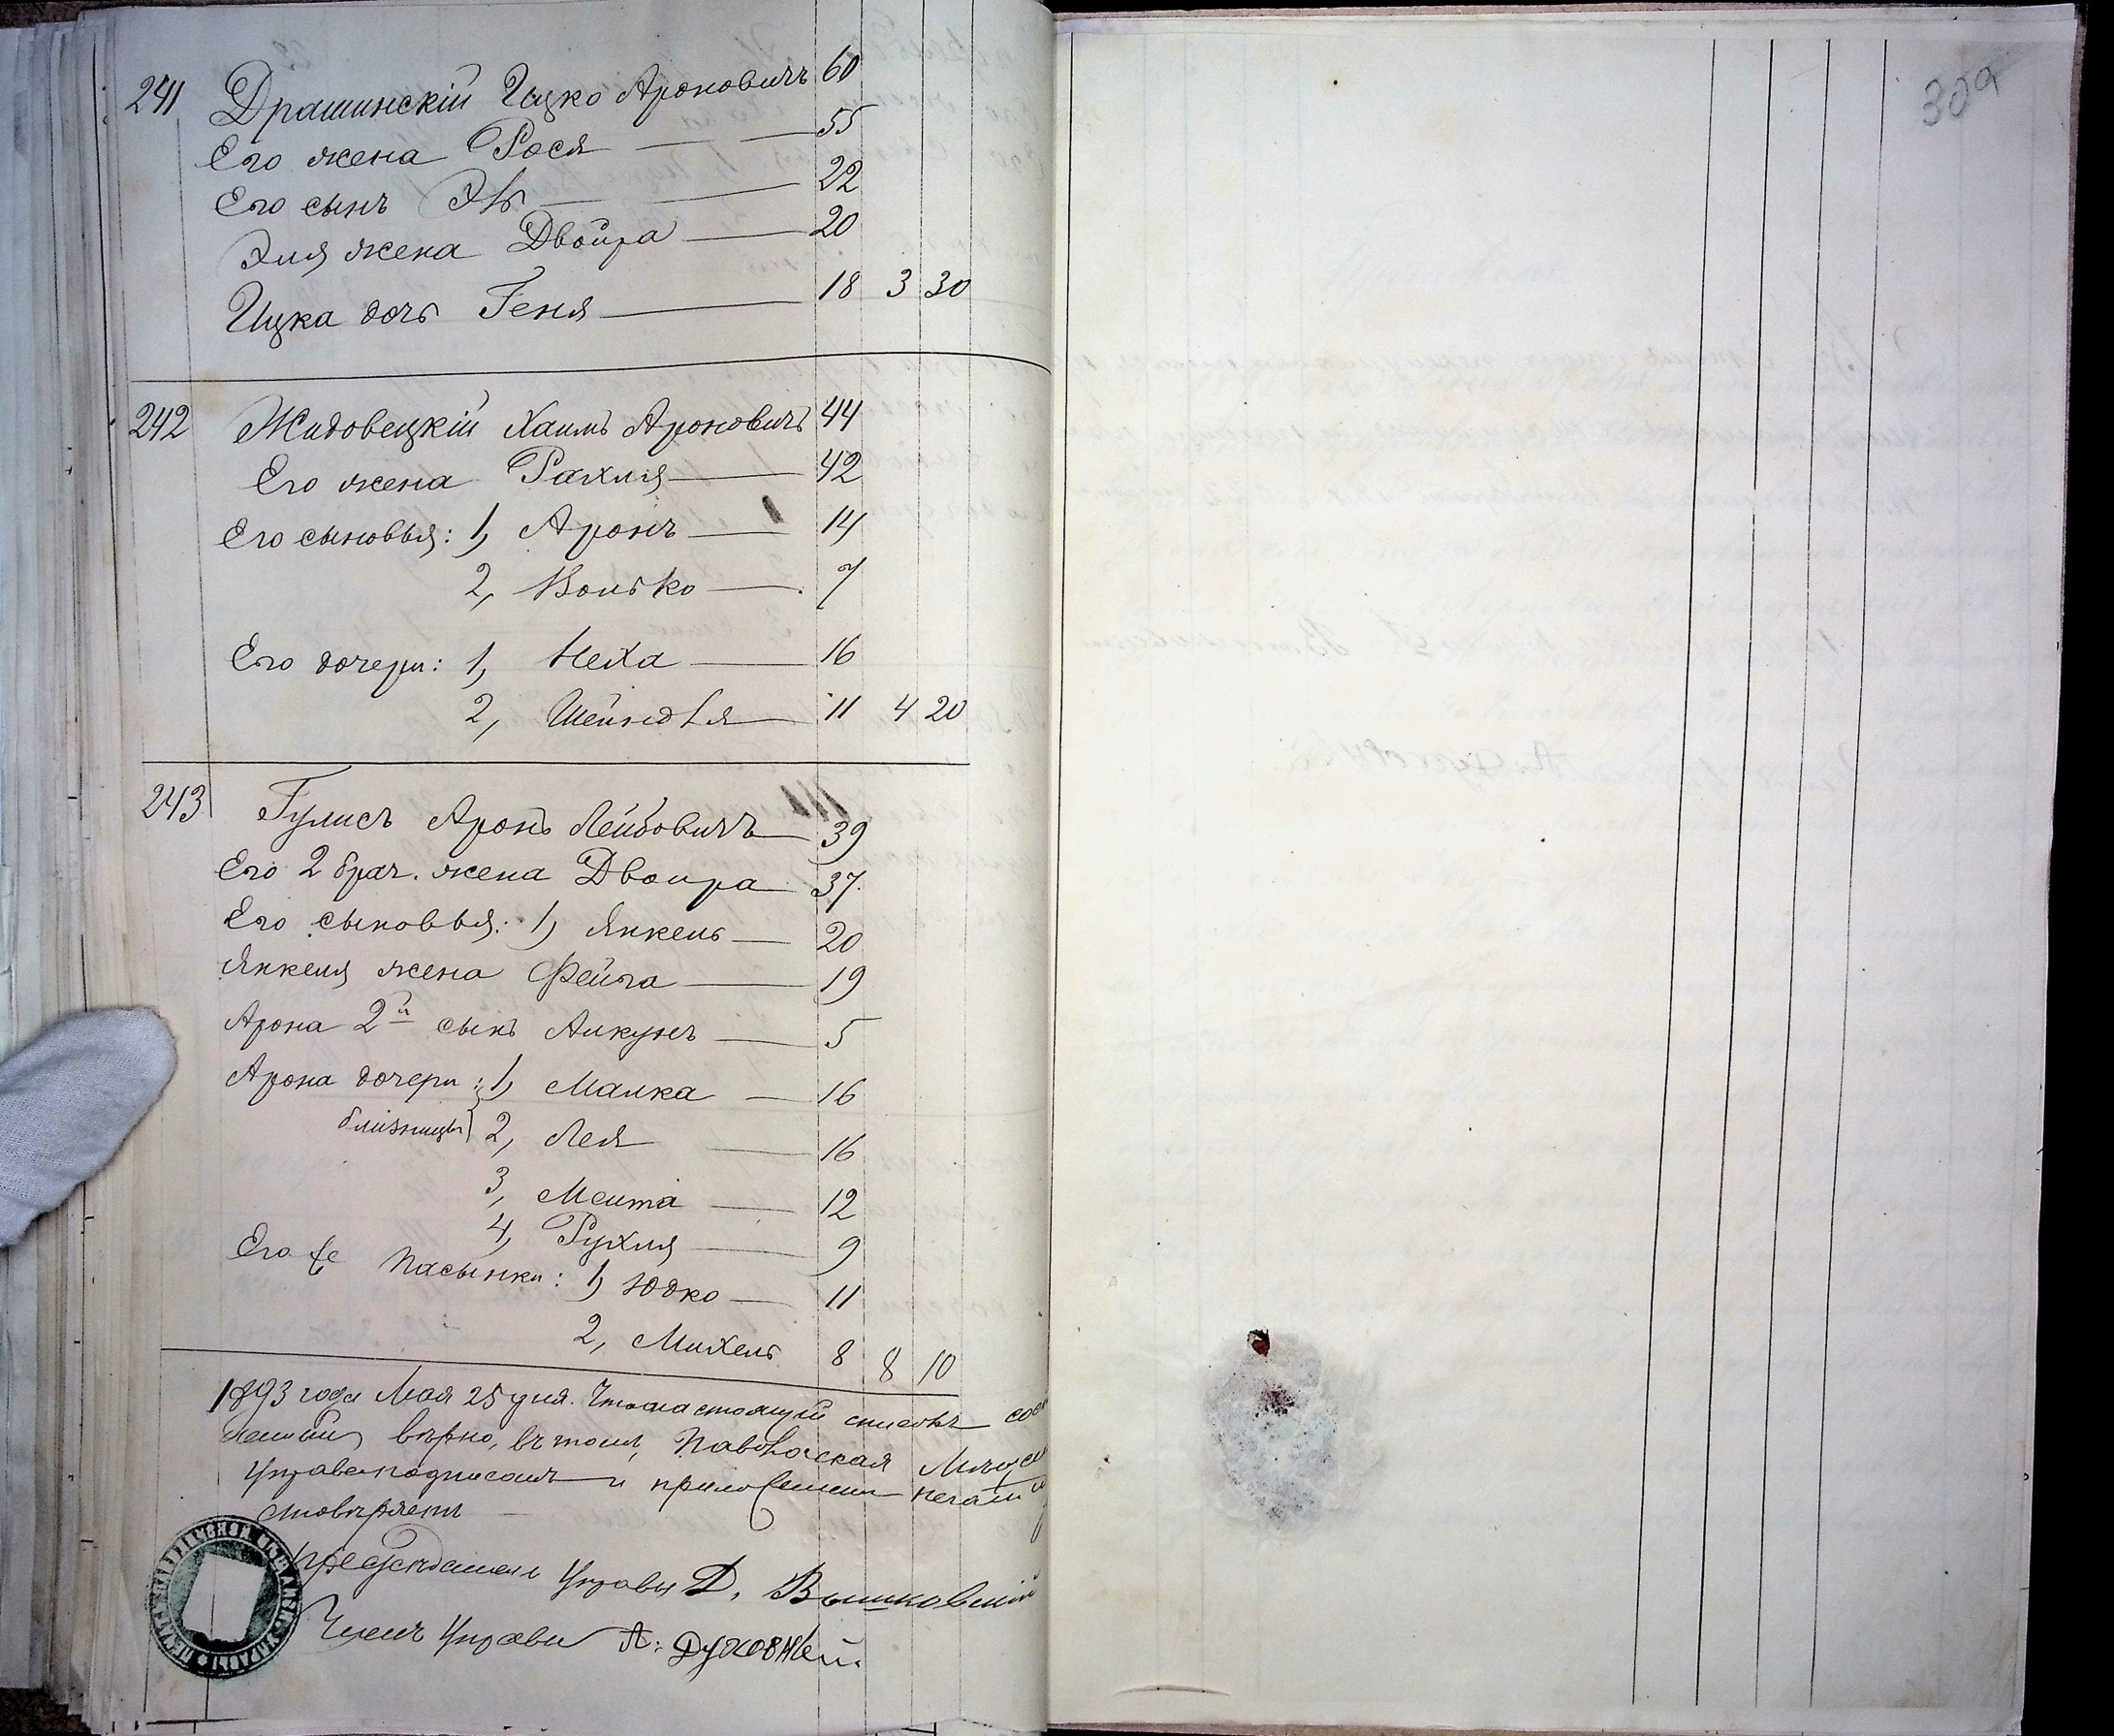 241 Драшинскій Ицко Ароновичъ 60
Его жена Рося 55
Его сынъ Эль 22
Эля жена Двойра 20
Ицка дочь Геня 18 3 30
242 Жидовецкій Хаимъ Ароновичъ 44
Его жена Рахля 42
Его сыновья: 1, Аронъ 14
2, Волько 7
Его дочери: 1, Неха 16
2, Шейндля 11 4 20
243 Гулисъ Аронъ Лейбовичъ 39
Его 2 брач. жена Двоира 37.
Его сыновья: 1, Янкель 20
Янкеля жена Фейга 19
Арона 2й сынъ Алкунъ 5
Арона дочери: 1, Малка 16
близницы 2, Лея 16
3, Мента 12
4, Рухля 9
Его же Пасынки: 1, Юдко 11
2, Михель 8 8 10
1893 года Мая 25 дня. Что настоящій списокъ
вѣрно, въ томъ, Паволочская
Управа подписомъ и приложеніемъ печати
Предсѣдатель Управы Д. Вышковскій
Членъ Управы А. Духовный.
309